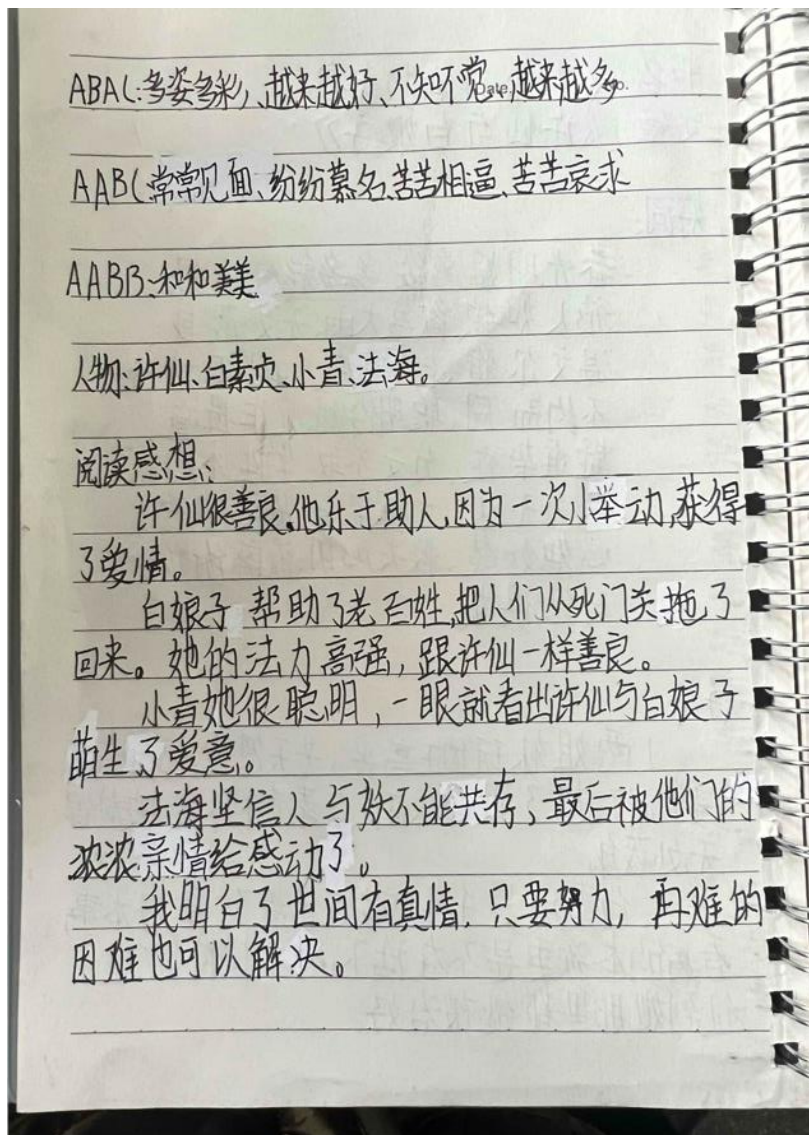 ABAC:多姿多彩、越来越好、不知不觉、越来越多.
Date.
AABC常常见面、纷纷慕名、苦苦相逼、苦苦哀求
AABB:和和美美
人物:许仙、白素贞、小青、法海。
阅读感想:
许仙很善良。他乐于助人,因为一次小举动,获得
了爱情。
白娘子 帮助了老百姓,把人们从死门关拖了
回来。她的法力高强,跟许仙一样善良。
小青她很聪明,一眼就看出许仙与白娘子
萌生了爱意。
法海坚信人与妖不能共存,最后被他们的
浓浓亲情给感动了。
我明白了世间有真情,只要努力,再难的
困难也可以解决。